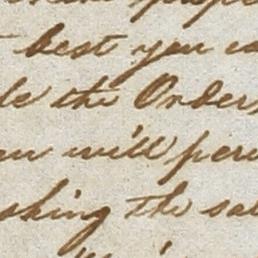 best you ca
le the Orders
en will per
aking the sa